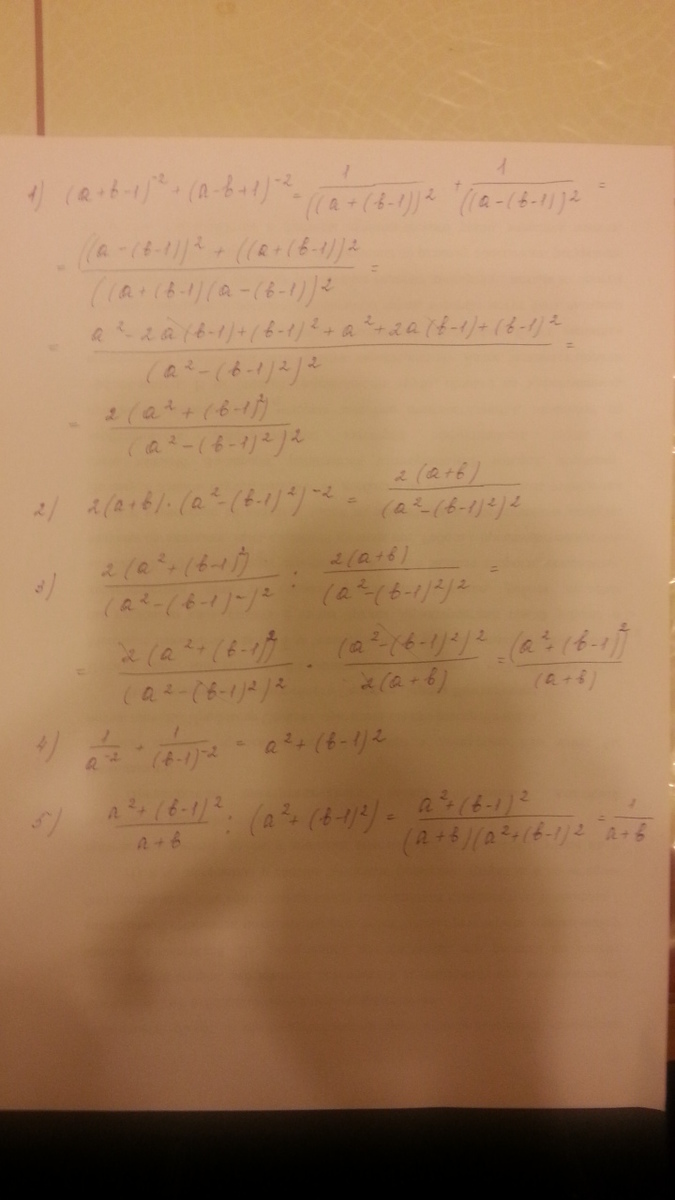 1) (a+b-1)^-2 + (a-b+1)^-2 = 1/((a+(b-1))^2 + 1/((a-(b-1))^2 =
= ((a-(b-1))^2 + ((a+(b-1))^2 / ((a+(b-1)(a-(b-1))^2 =
= a^2-2a(b-1)+(b-1)^2+a^2+2a(b-1)+(b-1)^2 / (a^2-(b-1)^2)^2 =
= 2(a^2+(b-1)^2) / (a^2-(b-1)^2)^2
2) 2(a+b)·(a^2-(b-1)^2)^-2 = 2(a+b) / (a^2-(b-1)^2)^2
3) 2(a^2+(b-1)^2) / (a^2-(b-1)^2)^2 : 2(a+b) / (a^2-(b-1)^2)^2 =
= 2(a^2+(b-1)^2) / (a^2-(b-1)^2)^2 · (a^2-(b-1)^2)^2 / 2(a+b) = (a^2+(b-1)^2) / (a+b)
4) 1/a^-2 + 1/(b-1)^-2 = a^2+(b-1)^2
5) a^2+(b-1)^2 / a+b : (a^2+(b-1)^2) = a^2+(b-1)^2 / (a+b)(a^2+(b-1)^2 = 1/a+b